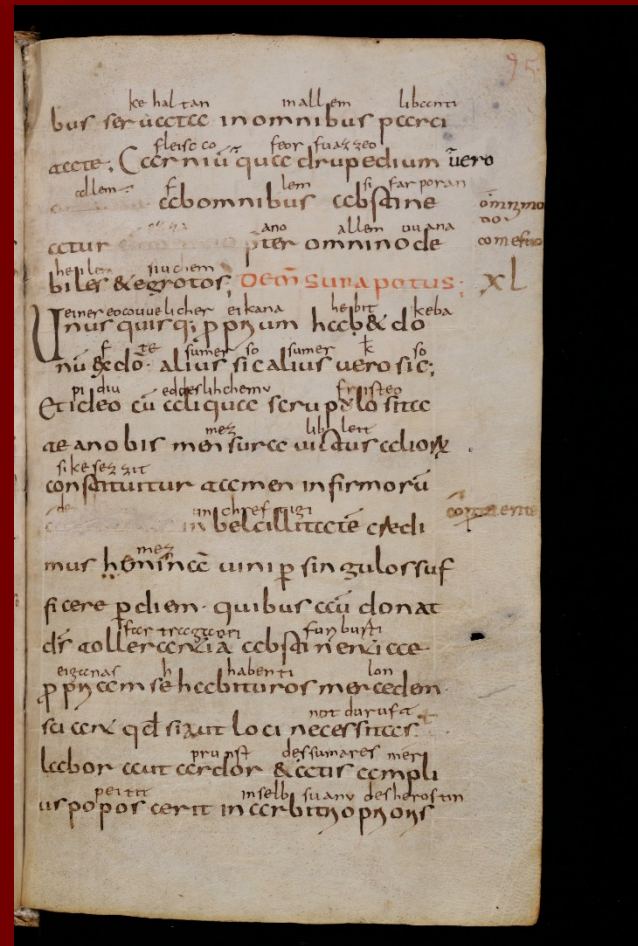 95
ke haltan in allem libenti
bus servata in omnibus parci
fleisco feor fuazzeo
tate; Carniū quadrupedium v̄ero
allem f lem si farporan
ab omnibus abstine
omnimo
do
ano allem uuana
atur pter omnino de
comestio
heilem siuchem
biles & egrotos; De mensura potus; XL
einer eocouuelicher eikana hebit keba
Unus quisq; pprium hab& do
f te sumer so sumer k so
nū ex do· alius sic alius vero sic;
pidiu eddeslihchemv frristeo
Et ideo cū aliqua scrupolositate
mez libleit
te a nobis mensura victus alior
sikesezzit
constituitur tamen infirmorū
de
in becillitatē credi
mez
mus heminā vini p singulos suf
ficere p diem· quibus aū donat
fartraganni funbursti
ds tollerantiā abstinentiae
eiganas h habenti lon
ppriam se habituros mercedem·
notdurufti
sciant qd si aut loci necessitas
prunst dessumares mera
labor aut ardor aestatis ampli
peitit in selb suanv des herostin
us poposcerit in arbitrio prioris